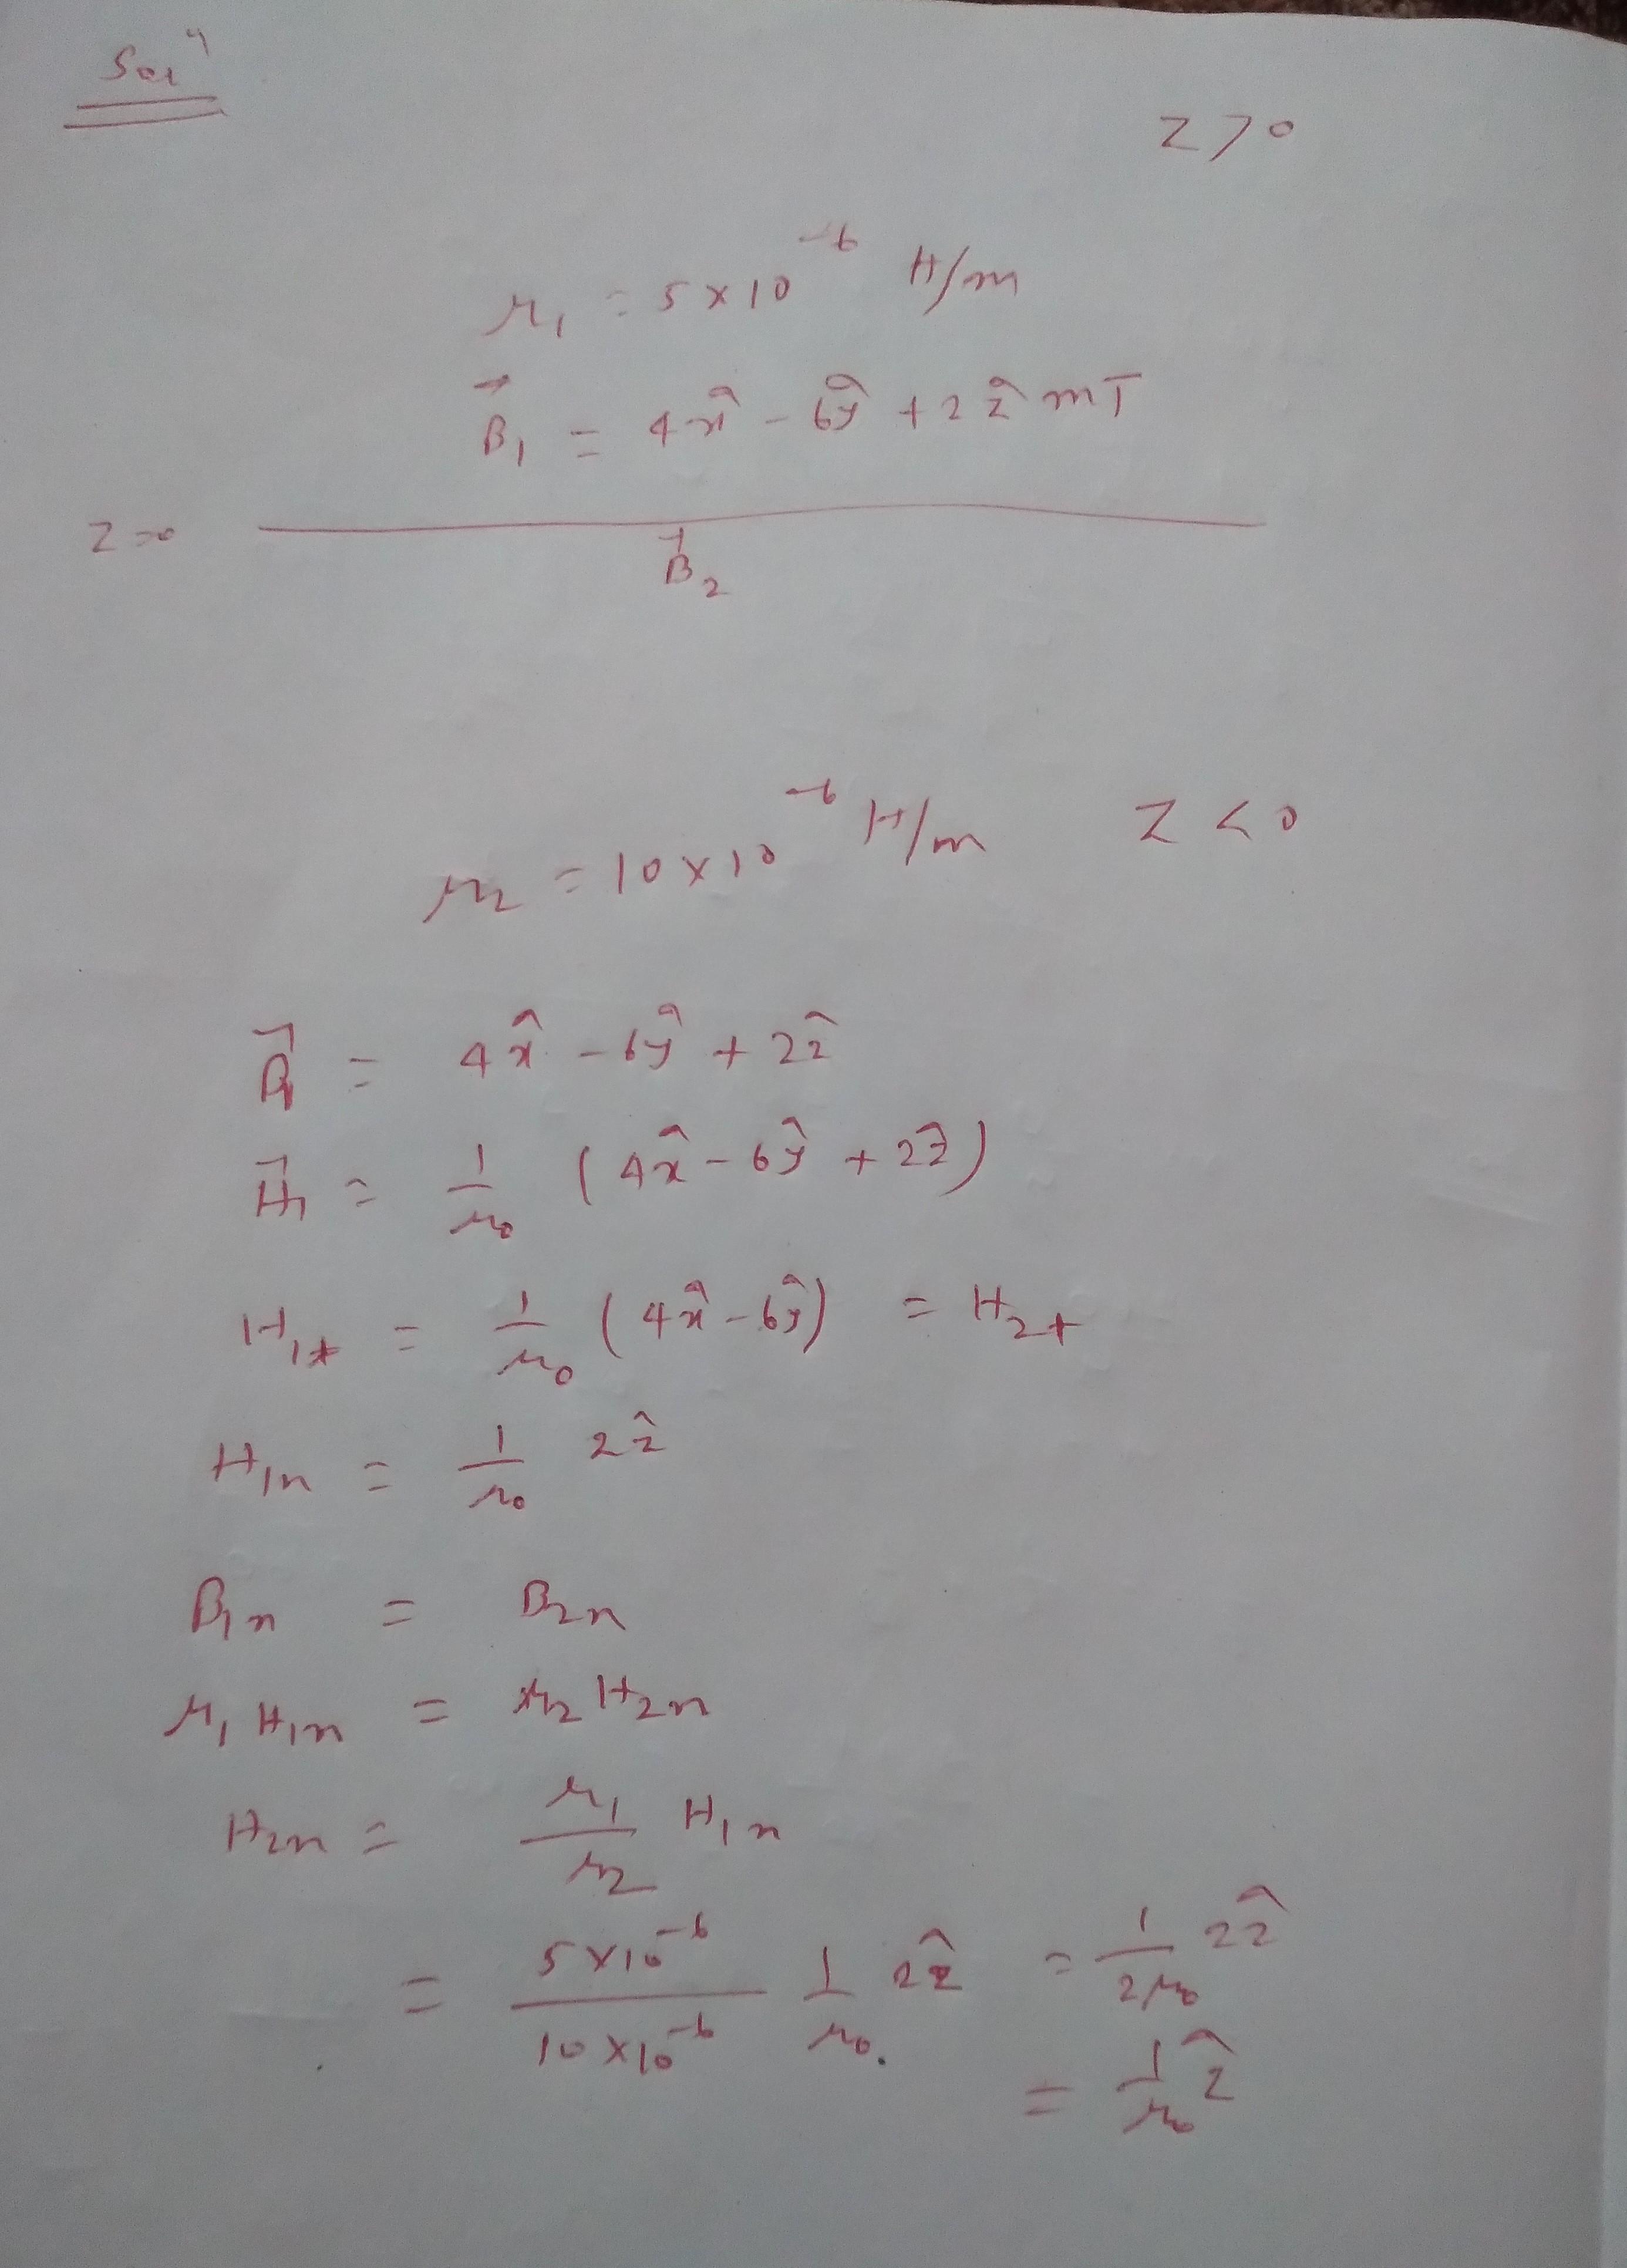 Solⁿ
Z > 0
μ₁ = 5 × 10⁻⁶ H/m
B⃗₁ = 4x̂ - 6ŷ + 2ẑ mT
Z = 0
B⃗₂
μ₂ = 10 × 10⁻⁶ H/m Z < 0
B⃗₁ = 4x̂ - 6ŷ + 2ẑ
H⃗₁ = 1/μ₀ (4x̂ - 6ŷ + 2ẑ)
H₁ₜ = 1/μ₀ (4x̂ - 6ŷ) = H₂ₜ
H₁ₙ = 1/μ₀ 2ẑ
B₁ₙ = B₂ₙ
μ₁ H₁ₙ = μ₂ H₂ₙ
H₂ₙ = μ₁/μ₂ H₁ₙ
= 5 × 10⁻⁶ / 10 × 10⁻⁶ 1/μ₀. 2ẑ = 1/2μ₀ 2ẑ
= 1/μ₀ ẑ